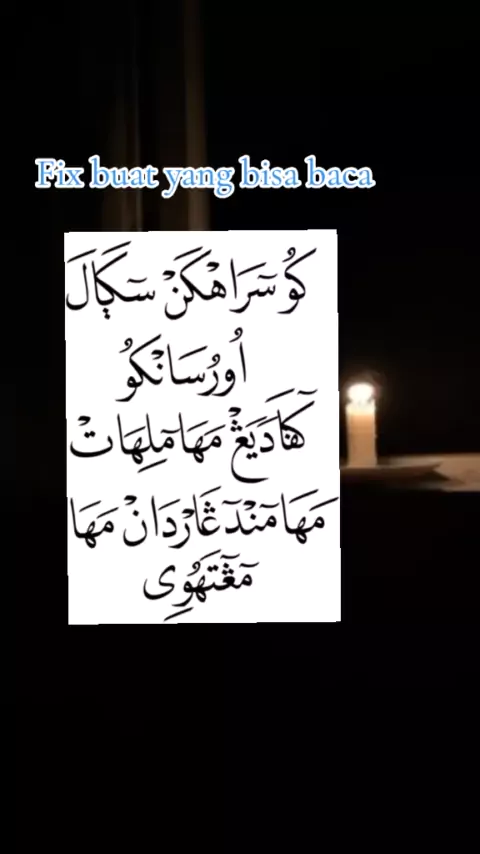 Fix buat yang bisa baca
كُوْ سٓرَاهْكَنْ سٓكَالَ
اُورُسَانْكُوْ
كٓڤَادَيَڠْ مَهَا مٓلِهَاتْ
مَهَا مٓنْدٓڠَارْ دَانْ مَهَا
مٓڠٓتَهُوِي